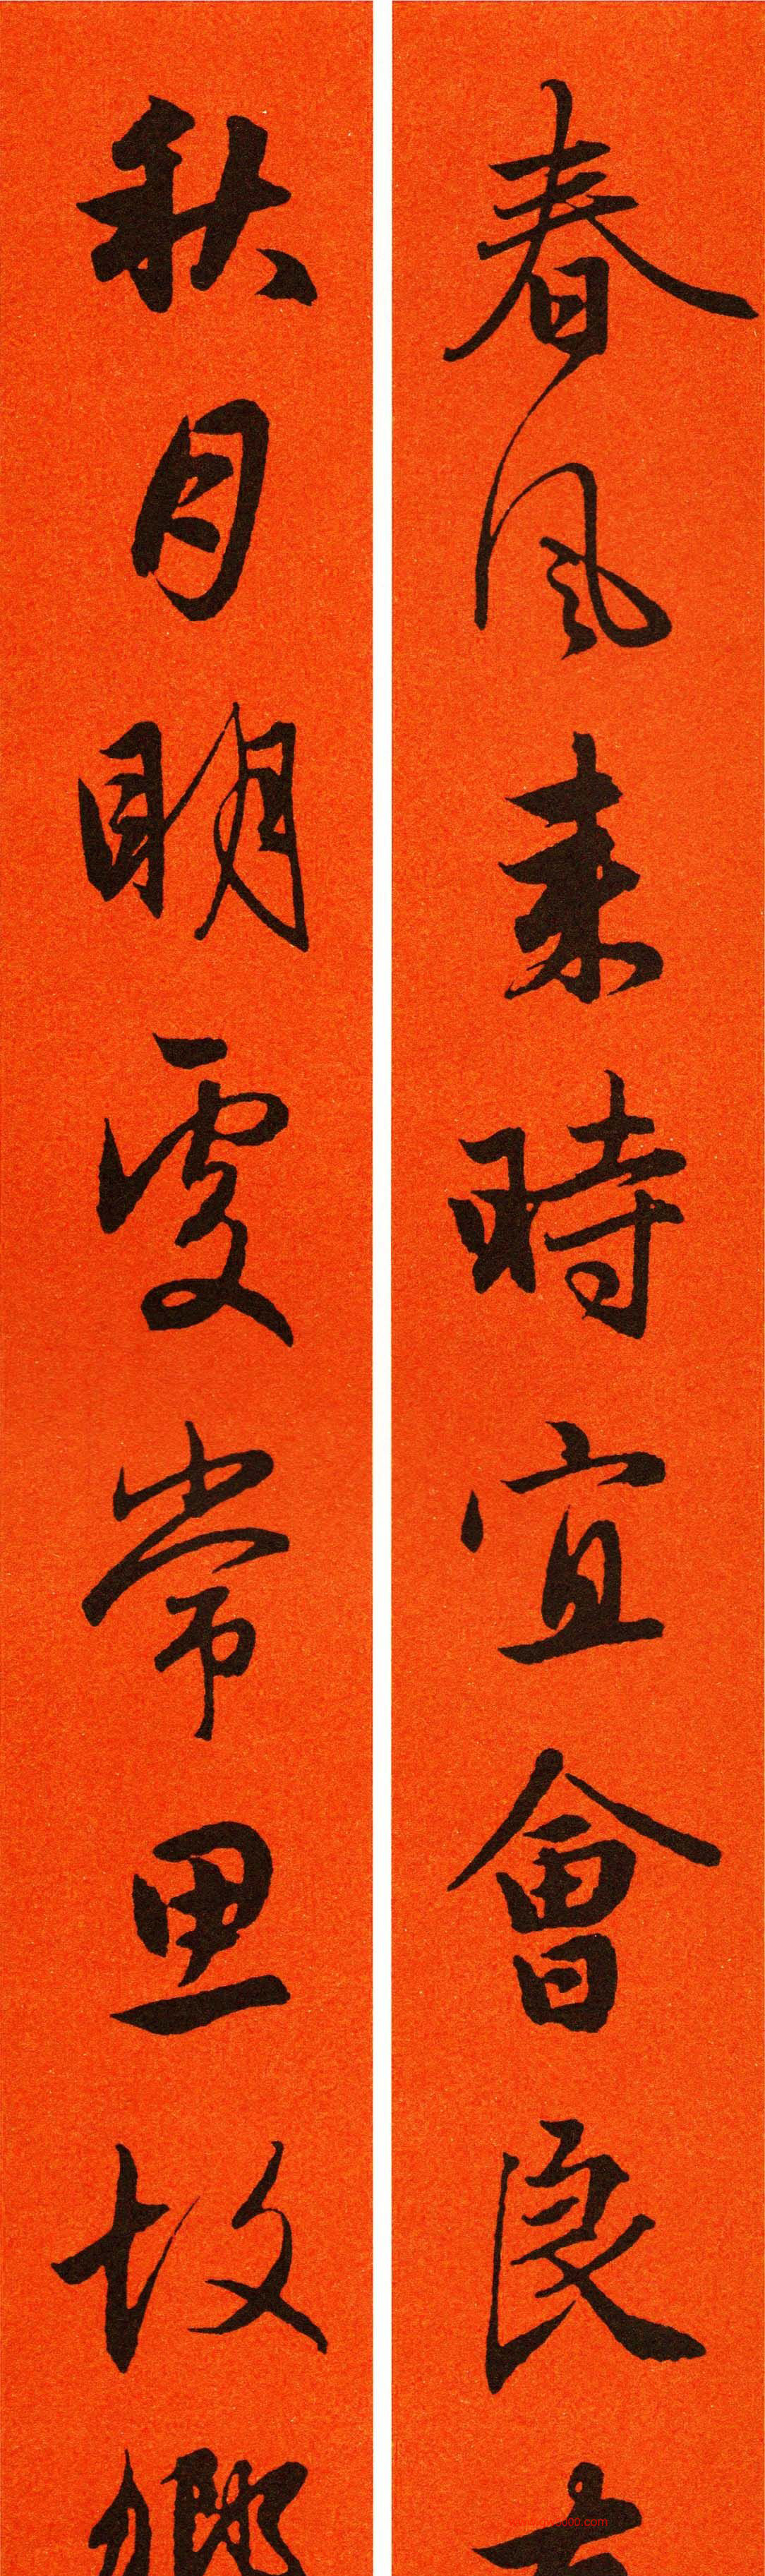 春風來時宜會良
秋月明處常思故鄉